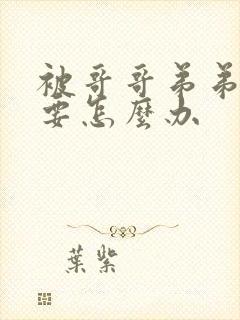 被哥哥弟弟
要怎麼办
葉紫